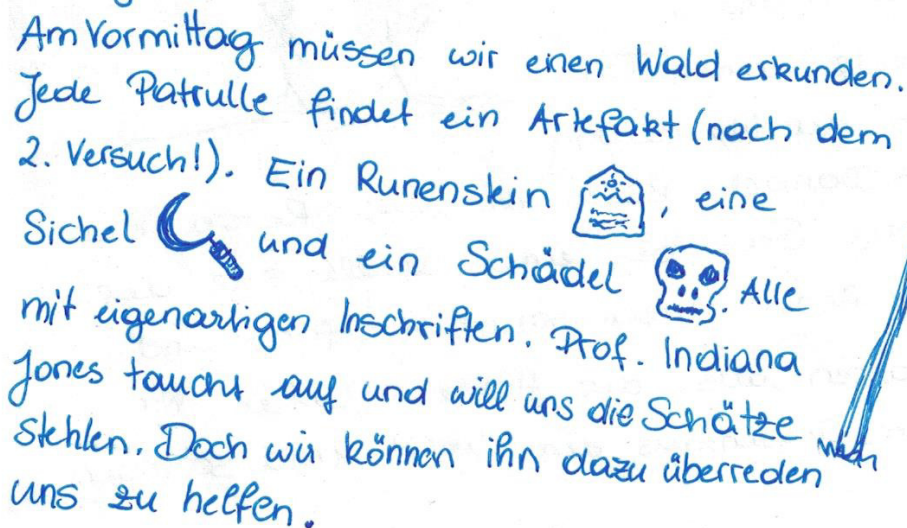 Am Vormittag müssen wir einen Wald erkunden.
Jede Patrulle findet ein Artefakt (nach dem
2. Versuch!). Ein Runenstein, eine
Sichel und ein Schädel. Alle
mit eigenartigen Inschriften. Prof. Indiana
Jones taucht auf und will uns die Schätze
stehlen. Doch wir können ihn dazu überreden
uns zu helfen.